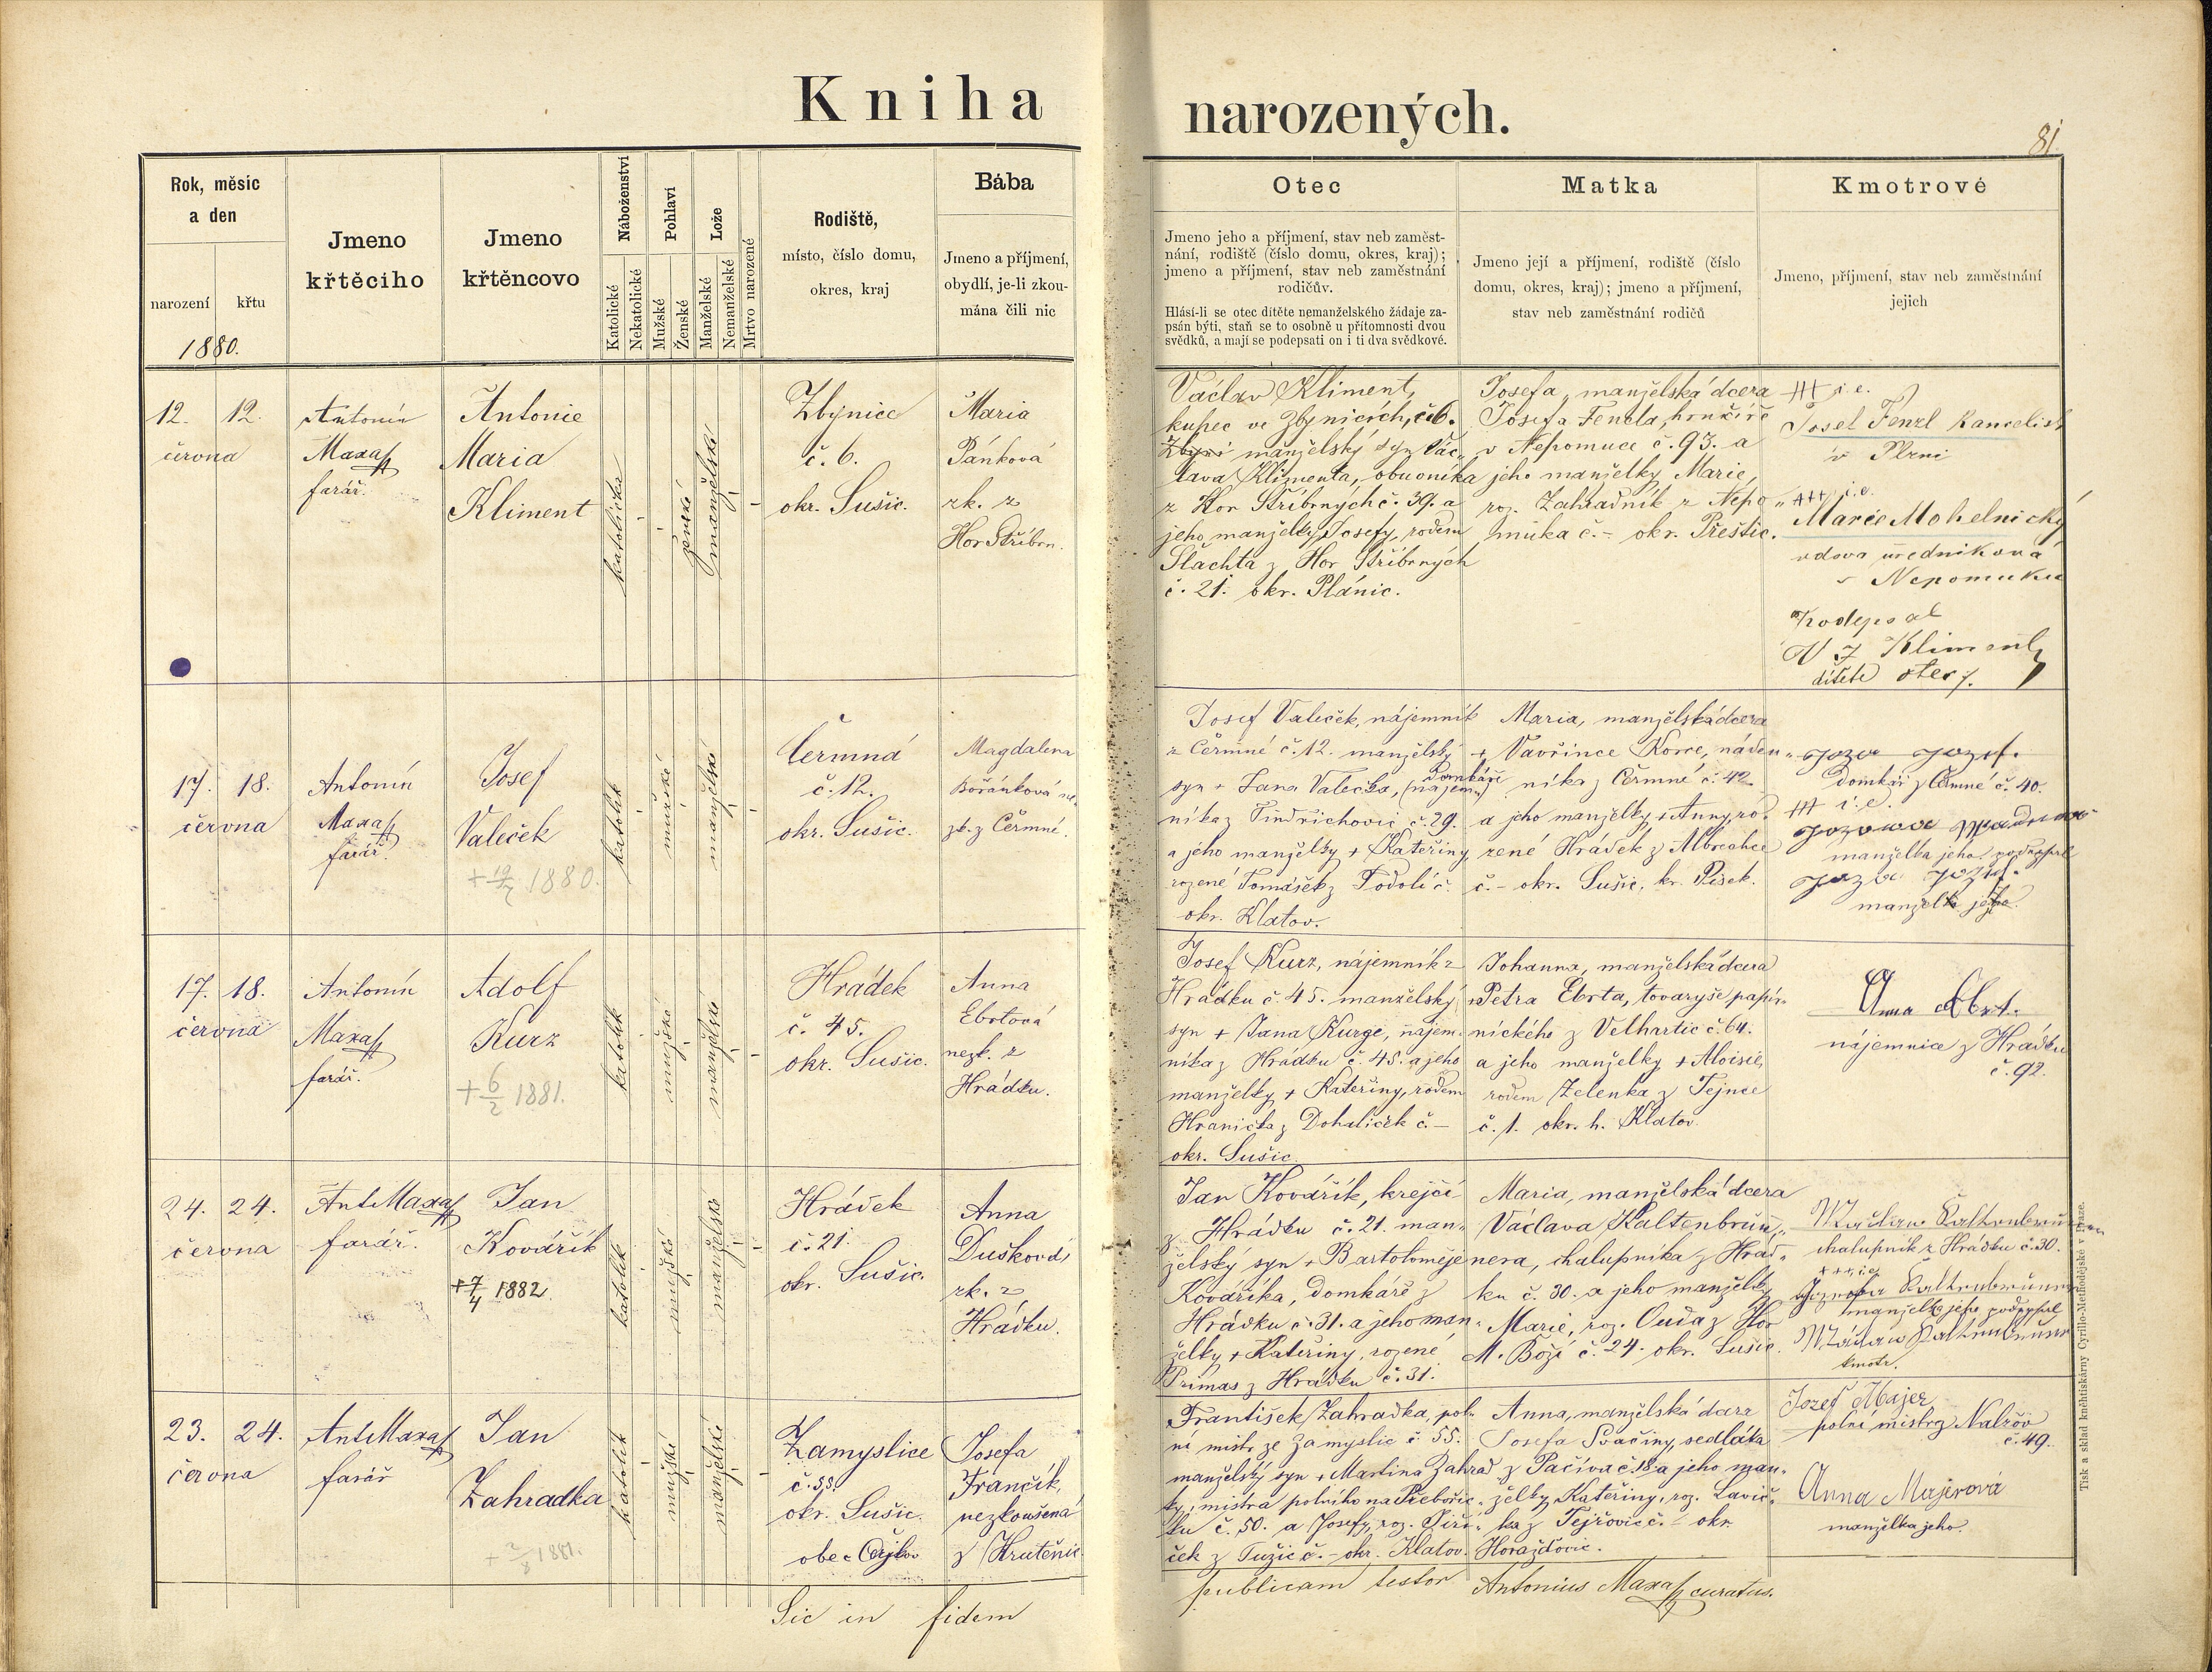 Kniha narozených.
81.
Rok, měsíc
a den
narození
křtu
1880.
Jmeno
křtěcího
Jmeno
křtěncovo
Náboženství
Katolické
Nekatolické
Pohlaví
Mužské
Ženské
Lože
Manželské
Nemanželské
Mrtvo narozené
Rodiště,
místo, číslo domu,
okres, kraj
Bába
Jmeno a příjmení,
obydlí, je-li zkou-
mána čili nic
Otec
Jmeno jeho a příjmení, stav neb zaměst-
nání, rodiště (číslo domu, okres, kraj);
jmeno a příjmení, stav neb zaměstnání
rodičův.
Hlásí-li se otec dítěte nemanželského žádaje za-
psán býti, staň se to osobně u přítomnosti dvou
svědků, a mají se podepsati on i ti dva svědkové.
Matka
Jmeno její a příjmení, rodiště (číslo
domu, okres, kraj); jmeno a příjmení,
stav neb zaměstnání rodičů
Kmotrové
Jmeno, příjmení, stav neb zaměstnání
jejich
12. 12.
června
Antonín
Maxa
farář.
Antonie
Maria
Kliment
katolička
ženské
manželské
Zbynice
č. 6.
okr. Sušic.
Maria
Pánková
zk. z
Hor Stříbrn.
Václav Kliment,
kupec ve Zbynicích, č. 6.
manželský syn Vác-
lava Klimenta, obuvníka
z Hor Stříbrných č. 39. a
jeho manželky Josefy, rodem
Šlachta z Hor Stříbrných
č. 21. okr. Plánic.
Josefa, manželská dcera
Josefa Fencla, hrnčíře
v Nepomuce č. 93. a
jeho manželky Marie,
roz. Zahradník z Nepo-
muka č. - okr. Přeštic.
+++ i. e.
Josef Fenzl kancelist
v Plzni
+++ i. e.
Marie Mohelnický
vdova úředníková
v Nepomuku
Podepsal
V J Kliment
dítěte otec
17. 18.
června
Antonín
Maxa
farář.
Josef
Valeček
+ 19/7 1880.
katolík
mužské
manželské
Čermná
č. 12.
okr. Sušic.
Magdalena
Bořánková ne-
zk. z Čermné.
Josef Valeček, nájemník
z Čermné č. 12. manželský
syn + Jana Valečka, (nájem-) domkáře
níka z Jindřichovic č. 29.
a jeho manželky + Kateřiny,
rozené Tomášek z Podolí č.
okr. Klatov.
Maria, manželská dcera
+ Vavřince Korce, náden-
níka z Čermné č. 42
a jeho manželky + Anny, ro-
zené Hrádek z Albrechce
č. - okr. Sušic, kr. Písek.
domkář z Čermné č. 40.
+++ i. e.
manželka jeho. podepsal
manžel její.
17. 18.
června
Antonín
Maxa
farář.
Adolf
Kurz
+ 6/2 1881.
katolík
mužské
manželské
Hrádek
č. 45.
okr. Sušic.
Anna
Ebrtová
nezk. z
Hrádku.
Josef Kurz, nájemník z
Hrádku č. 45. manželský
syn + Jana Kurze, nájem-
níka z Hrádku č. 45. a jeho
manželky + Kateřiny, rodem
Hranička z Dohaliček č. -
okr. Sušic.
Johanna, manželská dcera
+ Petra Ebrta, tovaryše papír-
nického z Velhartic č. 64.
a jeho manželky + Aloisie,
rodem Zelenka z Tejnce
č. 1. okr. h. Klatov.
Anna Ebrt.
nájemnice z Hrádku
č. 92.
24. 24.
června
Ant Maxa
farář.
Jan
Kovářík
+ 7/4 1882
katolík
mužské
manželské
Hrádek
č. 21.
okr. Sušic.
Anna
Dušková,
zk. z
Hrádku.
Jan Kovářík, krejčí
z Hrádku č. 21. man-
želský syn + Bartoloměje
Kováříka, domkáře z
Hrádku č. 31. a jeho man-
želky + Kateřiny, rozené
Primas z Hrádku č. 31.
Maria, manželská dcera
Václava Kaltenbrun-
nera, chalupníka z Hrád-
ku č. 30. a jeho manželky
Marie, roz. Ouda z Hor
M. Boží č. 24. okr. Sušic.
Wáclaw Kaltenbrunner
chalupník z Hrádku č. 30.
+++ i. e.
Kaltenbrunner
manželka jeho podepsal
Wáclaw Kaltenbrunner
kmotr.
23. 24.
června
Ant Maxa
farář
Jan
Zahradka
katolík
mužské
manželské
Zamyslice
č. 55.
okr. Sušic.
Josefa
Frančík,
nezkoušená
František Zahradka, pol-
ní mistr ze Zamyslic č. 55.
manželský syn + Martina Zahrad-
ky, mistra polního na Přebořic-
ku č. 50. a Josefy, roz. Jiří-
ček z Tužic č. - okr. Klatov.
Anna, manželská dcera
Josefa Svačiny, sedláka
z Pačiva č. 18. a jeho man-
želky Kateřiny, roz. Lavič-
ka z Tejřovic č. - okr.
Horažďovic.
Jozef Majer
polní mistr z Nalžov
č. 49.
Anna Majerová
manželka jeho.
Sic in fidem publicam testor Antonius Maxa curatus.
Tisk a sklad kněhtiskárny Cyrillo-Methodějské v Praze.